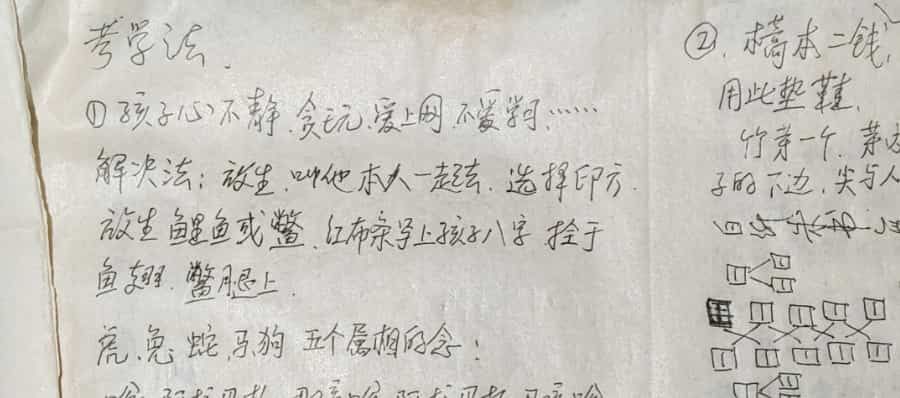 考学法.
①孩子心不静.贪玩.爱上网.不爱学习.……
解决法:放生.叫他本人一起去.选择印方.
放生鲤鱼或鳖.红布条写上孩子八字 拴于
鱼翅.鳖腿上.
虎.兔.蛇.马.狗 五个属相的念:
②.槁本二钱,
用此垫鞋.
竹茅一个.茅
子的下边.尖与人